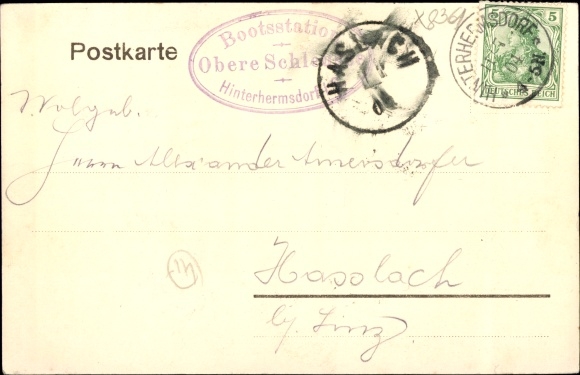 Postkarte
Bootsstatio
Obere Schle
Hinterhermsdorf
HASLACH
X836
HINTERHERMSDORF
5
DEUTSCHES REICH
Wolgeb.
Herrn Alexander Amersdorfer
Hasslach
b/ Linz.